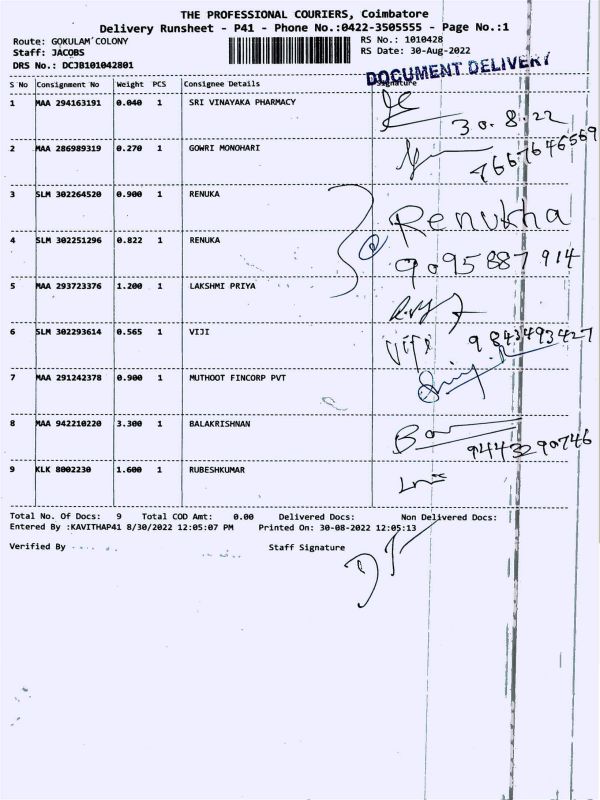 THE PROFESSIONAL COURIERS, Coimbatore
Delivery Runsheet - P41 - Phone No.:0422-3505555 - Page No.:1
Route: GOKULAM COLONY RS No.: 1010428
Staff: JACOBS RS Date: 30-Aug-2022
DRS No.: DCJB101042801
DOCUMENT DELIVERY
S No Consignment No Weight PCS Consignee Details Signature
1 MAA 294163191 0.040 1 SRI VINAYAKA PHARMACY
30.8.22
2 MAA 286989319 0.270 1 GOWRI MONOHARI
7667646569
3 SLM 302264520 0.900 1 RENUKA
Renukha
4 SLM 302251296 0.822 1 RENUKA
9095887914
5 MAA 293723376 1.200 1 LAKSHMI PRIYA
6 SLM 302293614 0.565 1 VIJI
Viji 9843493427
7 MAA 291242378 0.900 1 MUTHOOT FINCORP PVT
8 MAA 942210220 3.300 1 BALAKRISHNAN
9443290746
9 KLK 8002230 1.600 1 RUBESHKUMAR
Total No. Of Docs: 9 Total COD Amt: 0.00 Delivered Docs: Non Delivered Docs:
Entered By :KAVITHAP41 8/30/2022 12:05:07 PM Printed On: 30-08-2022 12:05:13
Verified By Staff Signature